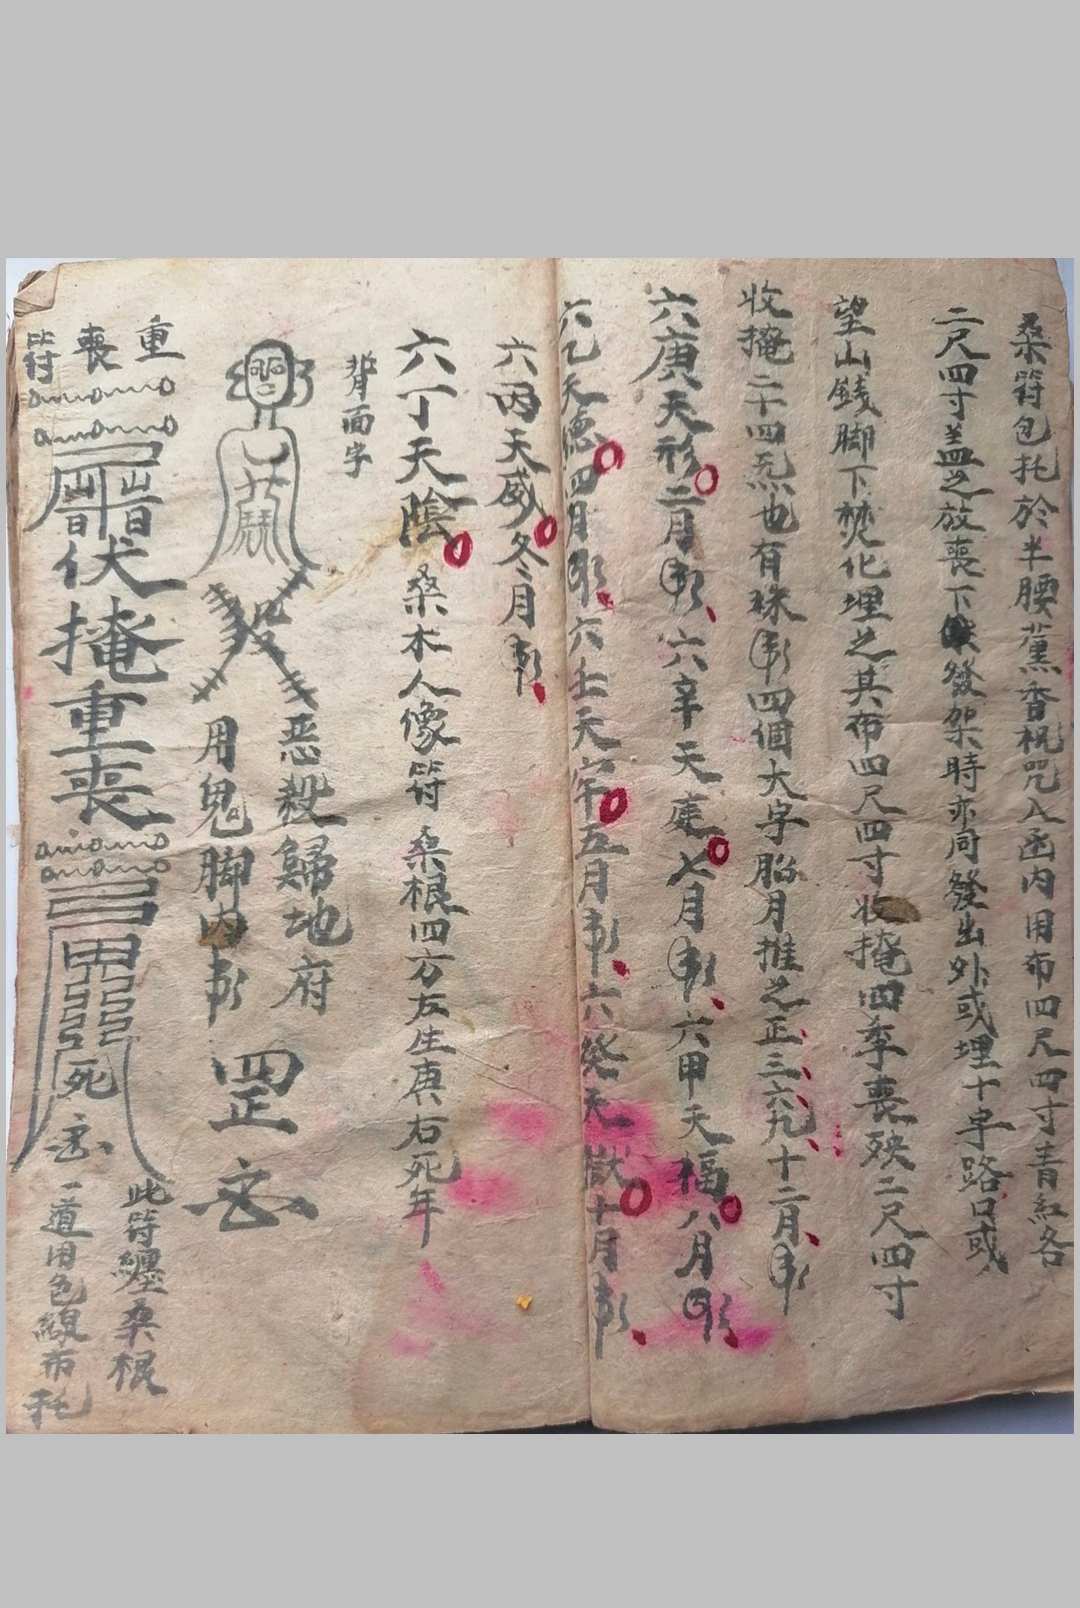 桑符包托於半腰薰香祝咒入函內用布四尺四寸青紅各
二尺四寸盖之放喪下發架時亦同發出外或埋十字路口或
望山錢脚下焚化埋之其布四尺四寸收掩四季喪殃二尺四寸
收掩二十四炁也有殊四個大字胎月推之正三六九十二月
六庚天形二月六辛天建七月六甲天福八月
六乙天德四月六壬天牢五月六癸天獄十月
六丙天威冬月
六丁天陰桑木人像符桑根四方左生庚右死年
背面字
惡殺歸地府
用鬼脚內
罡
重
喪
符
伏掩重喪
死
此符纏桑根
一道用色線布托